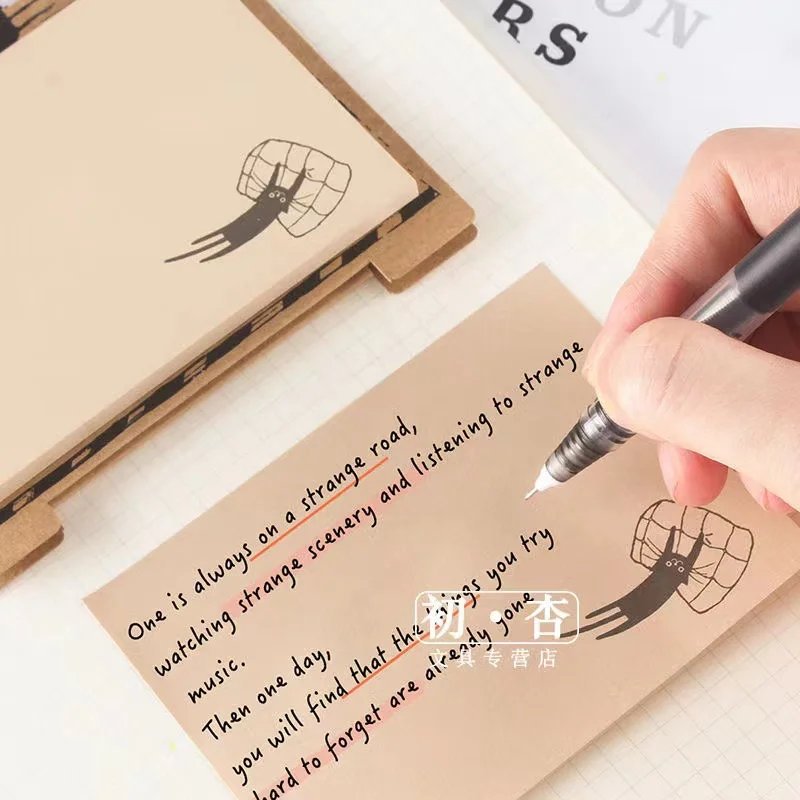 ON
RS
One is always on a strange road,
watching strange scenery and listening to strange
music.
Then one day,
you will find that the things you try
hard to forget are already gone
初·杏
文具专营店